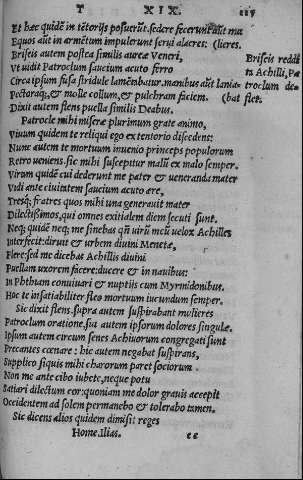 T XIX. 115
Et hæc quidē in tētorijs posuerūt. sedere fecerunt aūt mu
Equos aūt in armētum impulerunt serui alacres: (lieres.
Briseis autem postea similis aureæ Veneri, Briseis reddi
Vt uidit Patroclum saucium acuto ferro ta Achilli, Pa
Circa ipsum fusa stridule lamētabatur. manibus aūt lania- troclum de-
Pectoraq;, & molle collum, & pulchram faciem. (bat flet.
Dixit autem flens puella similis Deabus.
Patrocle mihi miseræ plurimum grate animo,
Viuum quidem te reliqui ego ex tentorio discedens:
Nunc autem te mortuum inuenio princeps populorum
Retro ueniens. sic mihi suscepitur malū ex malo semper.
Virum quidē cui dederunt me pater & ueneranda mater
Vidi ante ciuitatem saucium acuto ære,
Tresq; fratres quos mihi una generauit mater
Dilectissimos, qui omnes exitialem diem secuti sunt.
Neq; quidē neq; me sinebas qn̄ uirū meū uelox Achilles
Interfecit: diruit & urbem diuini Menetæ,
Flere: sed me dicebas Achillis diuini
Puellam uxorem facere: ducere & in nauibus:
In Phthiam conuiuari & nuptijs cum Myrmidonibus.
Hoc te insatiabiliter fleo mortuum iucundum semper.
Sic dixit flens. supra autem suspirabant mulieres
Patroclum oratione, sua autem ipsorum dolores singulæ.
Ipsum autem circum senes Achiuorum congregati sunt
Precantes cœnare: hic autem negabat suspirans,
Supplico siquis mihi charorum paret sociorum
Non me ante cibo iubete, neque potu
Satiari dilectum cor: quoniam me dolor grauis accepit
Occidentem ad solem permanebo & tolerabo tamen.
Sic dicens alios quidem dimisit reges
Home. Ilias. ee